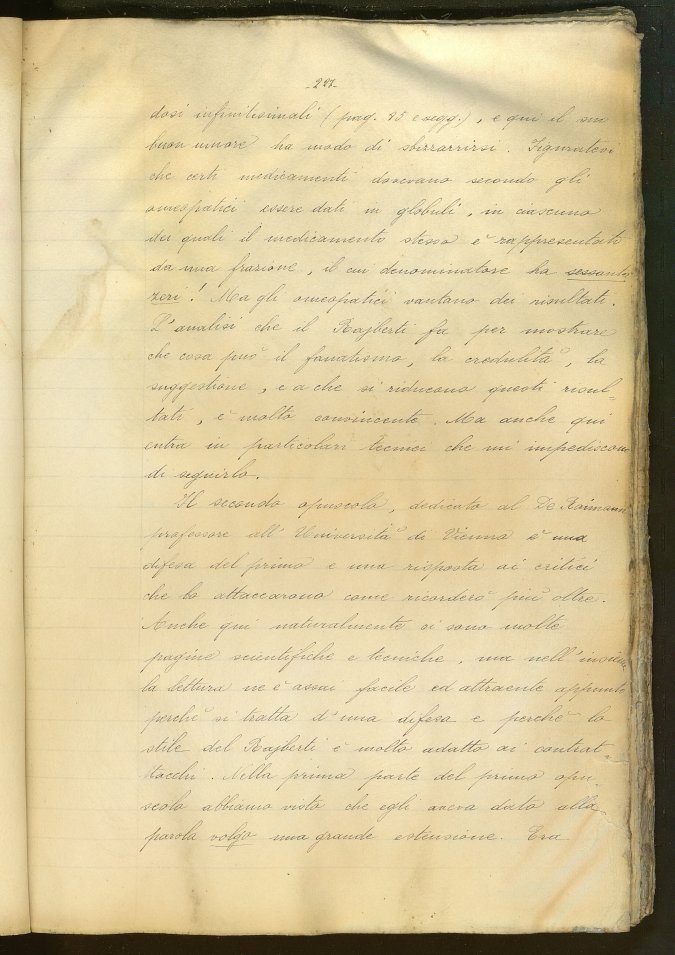 -227-
dosi infinitesimali (pag. 85 e segg.), e qui il suo
buon umore ha modo di sbizzarrirsi. Figuratevi
che certi medicamenti dovevano secondo gli
omeopatici essere dati in globuli, in ciascuno
dei quali il medicamento stesso è rappresentato
da una frazione, il cui denominatore ha sessanta
zeri! Ma gli omeopatici vantano dei risultati.
L'analisi che il Rajberti fa per mostrare
che cosa può il fanatismo, la credulità, la
suggestione, e a che si riducono questi risul-
tati, è molto convincente. Ma anche qui
entra in particolari tecnici che mi impediscono
di seguirlo.
Il secondo opuscolo, dedicato al De Raimann
professore all'Università di Vienna è una
difesa del primo e una risposta ai critici
che lo attaccarono come ricorderò più oltre.
Anche qui naturalmente vi sono molte
pagine scientifiche e tecniche, ma nell'insieme
la lettura ne è assai facile ed attraente appunto
perchè si tratta d'una difesa e perchè lo
stile del Rajberti è molto adatto ai contrat-
tacchi. Nella prima parte del primo opu-
scolo abbiamo visto che egli aveva dato alla
parola volgo una grande estensione. Era